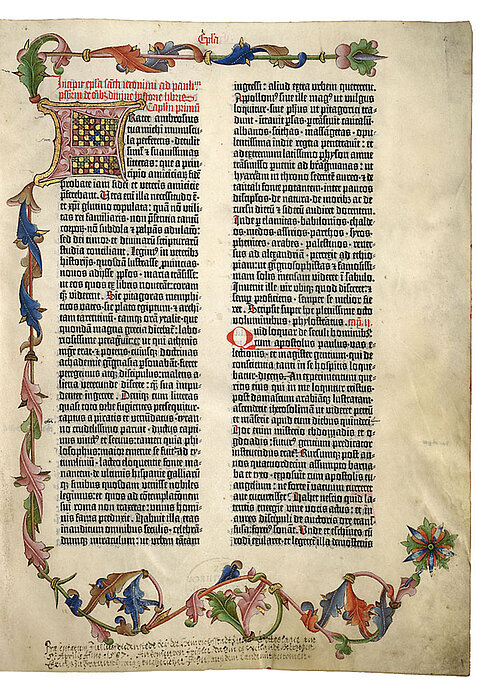 Epl̃a
Incipit epl̃a sancti iheronimi ad paulinũ
presbiterũ de oĩbus diuine historie libris.
Capl̃m primũ
Frater ambrosius
tua michi munuscu-
la perferens · detulit
simul et suauissimas
litteras: que a prin-
cipio amiciciarũ fidẽ
probate iam fidei et veteris amicicie
preferebant. Vera enĩ illa necessitudo ẽ·
et xp̃i glutino copulata: quã nõ vtili-
tas rei familiaris· non presentia tantũ
corporũ· nõ subdola et palpãs adulatio:
sed dei timor et diuinarũ scripturarũ
studia conciliant. Legimus in veteribus
historijs· quosdã lustrasse prouincias·
nouos adijsse populos· maria trãsisse:
ut eos quos ex libris nouerant: coram
quoque viderent. Sic pitagoras memphi-
ticos vates· sic plato egiptum · et archi-
tam tarentinũ · eamque orã ytalie· que
quondã magna grecia dicebat̃: labo-
riosissime peragrauit· ut qui athenis
magister erat · et potens · cuiusque doctrinas
achademie gignasia personabãt: fieret
peregrinus atque discipulus: malens a-
liena verecunde discere: quam sua impu-
denter ingerere. Deniq̃ cum litteras
quasi toto orbe fugientes persequitur·
captus a piratis et venũdatus· tirãn-
no crudelissimo paruit · ductus captiuus
vinctus et seruus: tamen quia phi-
losophus: maior emente se fuit: ad ti-
tumliuiũ · lacteo eloquentie fonte ma-
nantem· de ultimis hispanie galliarumque
finibus quosdam venisse nobiles
legimus: et quos ad cõtemplatõnem
sui roma non traxerat: unius homi-
nis fama perduxit. Habuit illa etas
inauditum omnibus seculis · celebrã-
dumque miraculum: ut urbem tantam
ingressi: aliud extra urbem quererent.
Apollonius siue ille magus ut vulgus
loquitur· siue phus ut pitagorici tra-
dunt: intrauit psas· pertrãsiuit caucasũ·
albanos· scithas · massagetas · opu-
lentissima indie regna penetrauit: et
ad extremum latissimo physon amne
transmisso puenit ad bragmanas: ut
hyarcam in throno sedentẽ aureo · et de
tantali fonte potantem· inter paucos
discipulos· de natura· de moribus ac de
cursu dierũ et siderũ audiret docentem.
Inde per elamitas· babilonios· chalde-
os· medos· assirios· parthos · syros
phenices · arabes · palestinos · reuer-
sus ad alexandriã · perrexit ad ethio-
piam: ut gignosophistas et famosissi-
mam solis mensam videret ĩ sabulo.
Inuenit ille vir ubique quod disceret: et
semper proficiens · semper se melior fie-
ret. Scripsit super hoc plenissime octo
voluminibus · phylostratus. Cap̃. II
Quid loquar de seculi hominibus:
cum apostolus paulus· vas e-
lectionis· et magister gentium· qui de
conscientia tanti in se hospitis loque-
batur· dicens. An experimentum que-
ritis eius qui in me loquitur cristus:
post damascum arabiãque lustratam:
ascenderit iherosolimã ut videret petrũ
et mãserit apud eum diebus quindeci.
Hoc enim misterio ebdomadis et o-
gdoadis: futurus gentium predicator
instruendus erat. Rursumque post an-
nos quatuordecim assumpto barna-
ba et tyto · exposuit cum apostolis eu-
angelium: ne forte in vacuum curreret
aut cucurrisset. Habet nescio quid la-
tentis energie viue vocis actus: et in
aures discipuli de auctoris ore trans-
fusa: fortius sonat. Unde et eschines cũ
rodi exularet· et legeretur illa demostenis